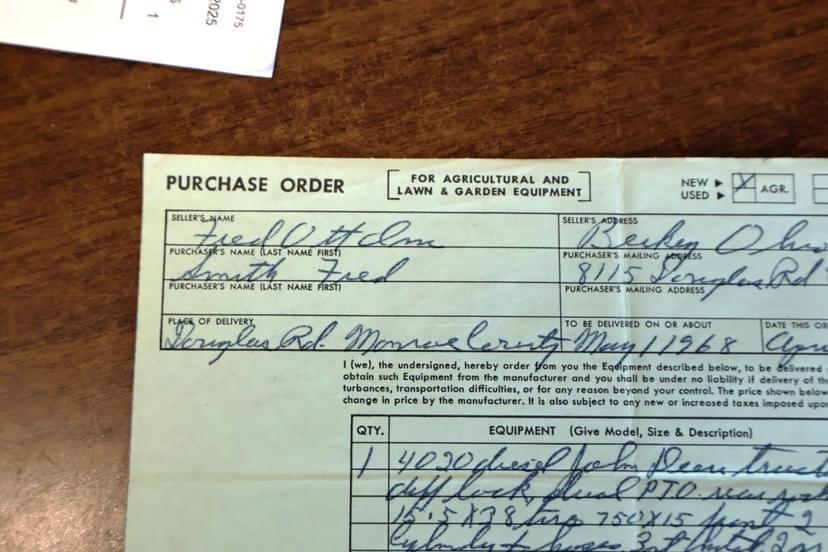 -0175
2025
1
PURCHASE ORDER
FOR AGRICULTURAL AND
LAWN & GARDEN EQUIPMENT
NEW ▶ X AGR.
USED ▶
SELLER'S NAME SELLER'S ADDRESS
Fred Ott Berkey Ohio
PURCHASER'S NAME (LAST NAME FIRST) PURCHASER'S MAILING ADDRESS
Smith Fred 8115 Douglas Rd
PURCHASER'S NAME (LAST NAME FIRST) PURCHASER'S MAILING ADDRESS
PLACE OF DELIVERY TO BE DELIVERED ON OR ABOUT DATE THIS OR
Douglas Rd. Monroe County May 1 1968 Apri
I (we), the undersigned, hereby order from you the Equipment described below, to be delivered
obtain such Equipment from the manufacturer and you shall be under no liability if delivery of the
turbances, transportation difficulties, or for any reason beyond your control. The price shown below
change in price by the manufacturer. It is also subject to any new or increased taxes imposed upo
QTY. EQUIPMENT (Give Model, Size & Description)
1 4020 diesel John Deere
diff lock, dual PTO rear
15.5 X 38 tires 750X15 front 2
hoses 3